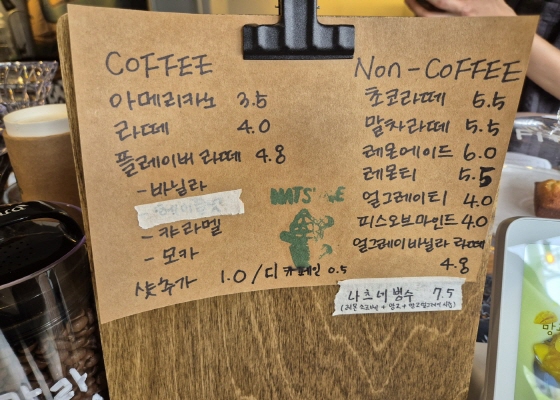 COFFEE
아메리카노 3.5
라떼 4.0
플레이버 라떼 4.8
- 바닐라
- 캬라멜
- 모카
샷추가 1.0 / 디카페인 0.5
Non-COFFEE
초코라떼 5.5
말차라떼 5.5
레몬에이드 6.0
레몬티 5.5
얼그레이티 4.0
피스오브마인드 4.0
얼그레이바닐라 라떼
4.8
나츠네 빙수 7.5